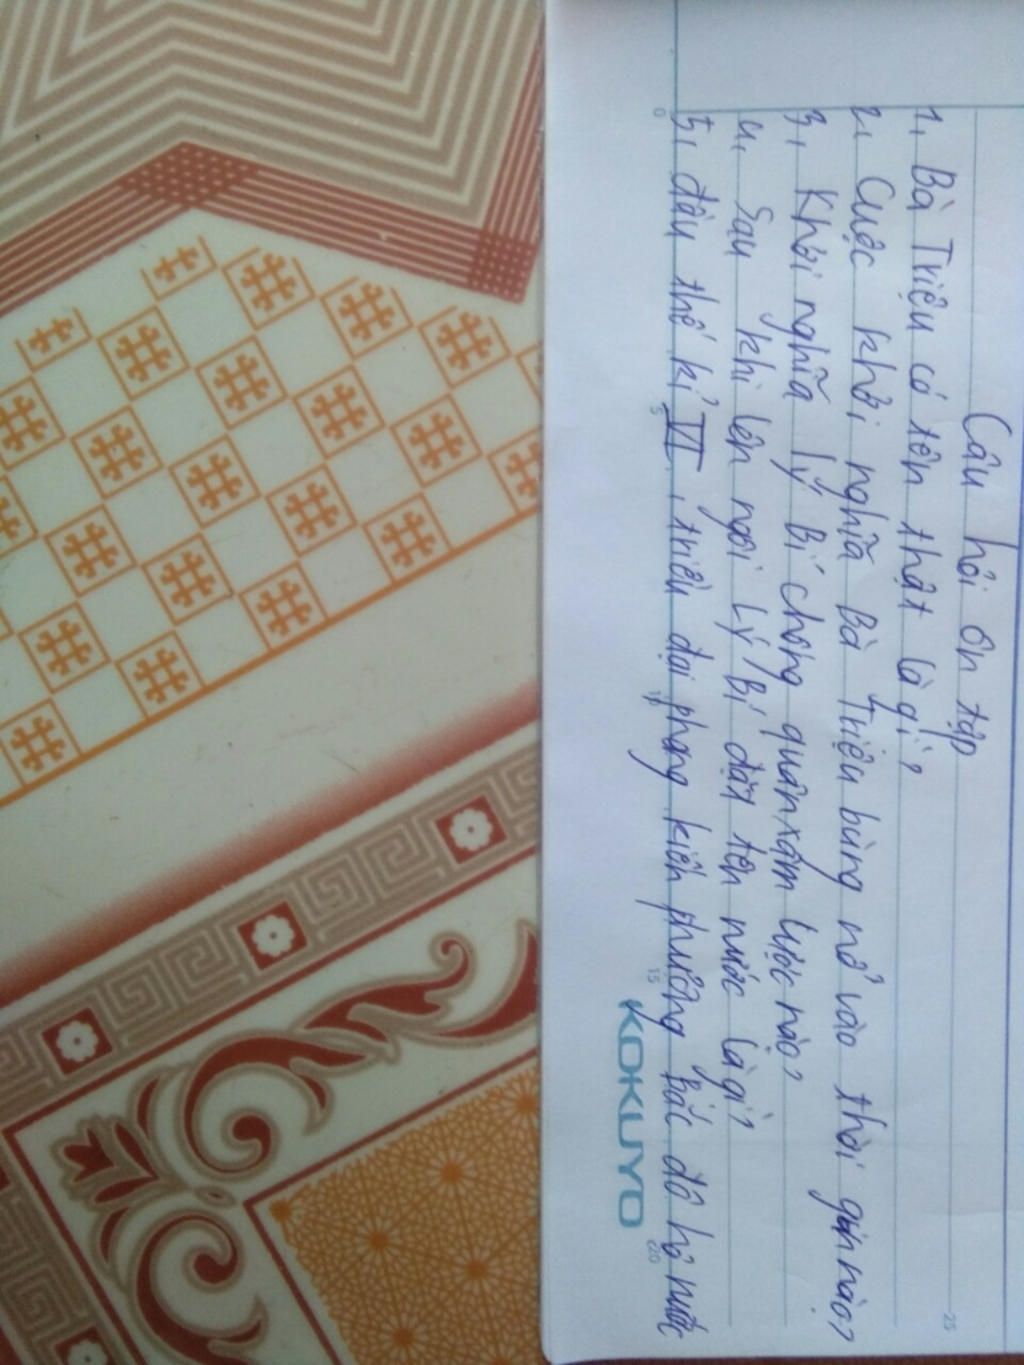 Câu hỏi ôn tập
1, Bà Triệu có tên thật là gì?
2, Cuộc khởi nghĩa Bà Triệu bùng nổ vào thời gian nào?
3, Khởi nghĩa Lý Bí chống quân xâm lược nào?
4, Sau khi lên ngôi Lý Bí đặt tên nước là gì?
5, đầu thế kỉ VI, triều đại phong kiến phương Bắc đô hộ nước
0 5 10 15 20 25
KOKUYO